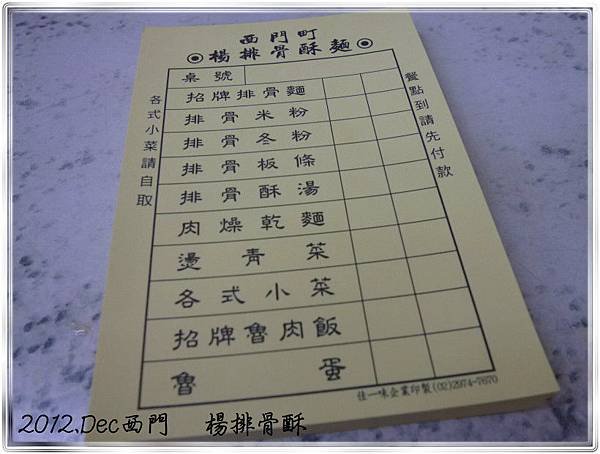 西門町
楊排骨酥麵
桌號
招牌排骨麵
排骨米粉
排骨冬粉
排骨板條
排骨酥湯
肉燥乾麵
燙青菜
各式小菜
招牌魯肉飯
魯蛋
各式小菜請自取
餐點到請先付款
佳一味企業印製(02)2974-7670
2012.Dec西門 楊排骨酥